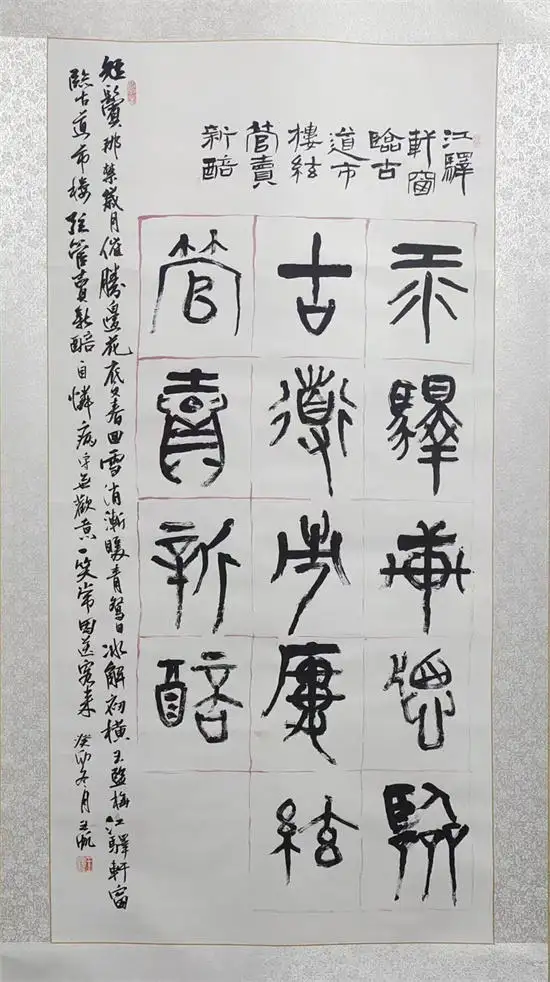 江驛
軒窗
臨古
道市
樓絃
管賣
新醅
江驛軒窗臨
古道市樓絃
管賣新醅
短鬢那禁歲月催邊花底又春回雪消漸暖青日冰解初橫玉梅江驛軒窗
臨古道市樓絃管賣新醅自憐病守無歡意一笑常因送客來 癸卯冬月王帆